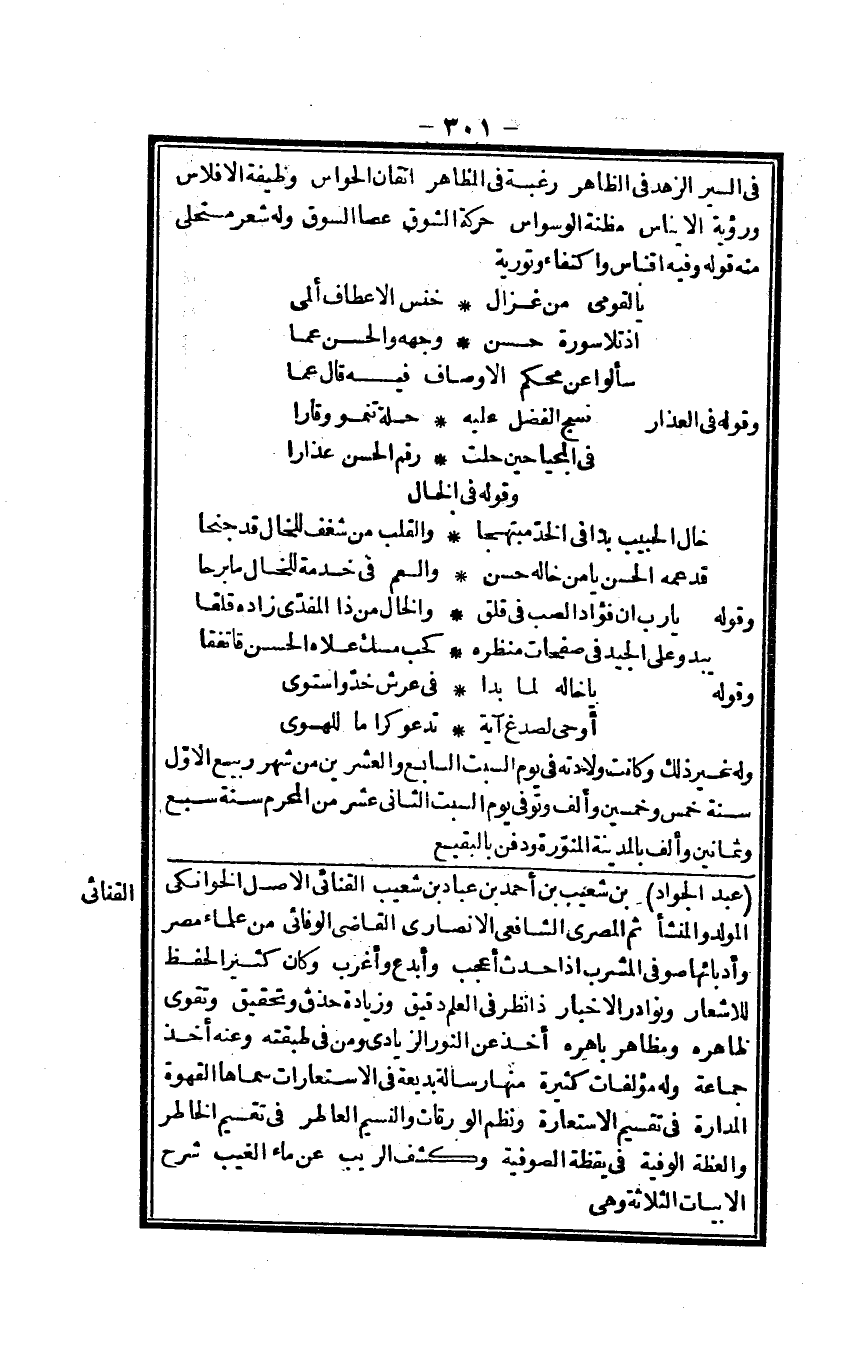 - ٣٠١ -
فى السير الزهد فى الظاهر رغبة فى المظاهر اتقان الحواس وظيفة الافلاس
ورؤية الايناس مظنة الوسواس حركة الشوق عصا السوق وله شعر مستحلى
منه قوله وفيه اقتباس واكتفاء وتورية
يا لقومى من غزال * خنس الاعطاف ألمى
اذ تلا سورة حسن * وجهه والحسن عما
سألوا عن محكم الاوصاف فيه قال عما
وقوله فى العذار نسج الفضل عليه * حلة تنمو وقارا
فى المحيا حين حلت * رقم الحسن عذارا
وقوله فى الخال
خال الحبيب بدا فى الخد مبتهجا * والقلب من شغف للخال قد جنحا
قد عمه الحسن يا من خاله حسن * والعم فى خدمة للخال ما برحا
وقوله يا رب ان فؤاد الصب فى قلق * والخال من ذا المفدّى زاده قلقا
يبدو على الجيد فى صفحات منظره * كحب مسك علاه الحسن فاتفقا
وقوله يا خاله لما بدا * فى عرش خدّ واستوى
أوحى لصدغ آية * تدعو كراما للهوى
وله غير ذلك وكانت ولادته فى يوم السبت السابع والعشرين من شهر ربيع الاوّل
سنة خمس وخمسين وألف وتوفى يوم السبت الثانى عشر من المحرم سنة سبع
وثمانين وألف بالمدينة المنوّرة ودفن بالبقيع
القنائى
(عبد الجواد) بن شعيب بن أحمد بن عباد بن شعيب القنائى الاصل الخوانكى
المولد والمنشأ ثم المصرى الشافعى الانصارى القاضى الوفائى من علماء مصر
وأدبائها صوفى المشرب اذا حدث أعجب وأبدع وأغرب وكان كثير الحفظ
للاشعار ونوادر الاخبار ذا نظر فى العلم دقيق وزيادة حذق وتحقيق وتقوى
ظاهره ومظاهر باهره أخذ عن النور الزيادى ومن فى طبقته وعنه أخذ
جماعة وله مؤلفات كثيرة منها رسالة بديعة فى الاستعارات سماها القهوة
المدارة فى تقسيم الاستعارة ونظم الورقات والنسيم العاطر فى تقسيم الخاطر
والعظة الوفية فى يقظة الصوفية وكشف الريب عن ماء الغيب شرح
الابيات الثلاثة وهى